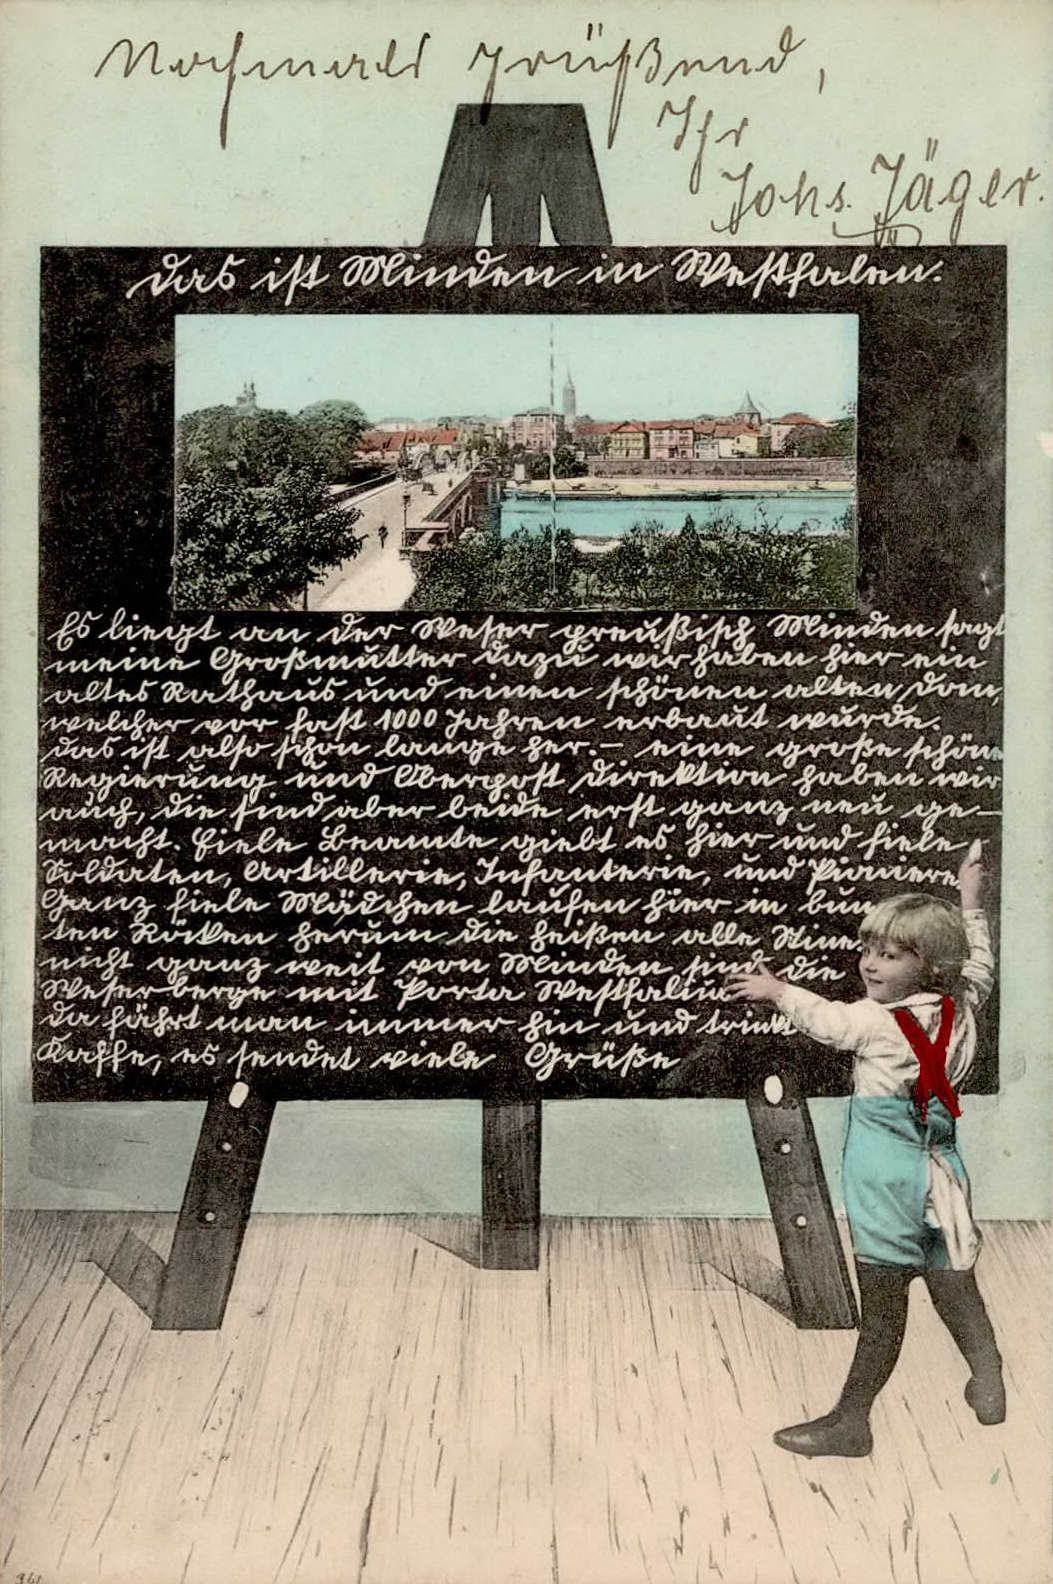 Nochmals grüßend,
Ihr
Johs. Jäger.
Das ist Minden in Westfalen.
Es liegt an der Weser preußisch Minden sagt
meine Großmutter dazu wir haben hier ein
altes Rathaus und einen schönen alten Dom,
welcher vor fast 1000 Jahren erbaut wurde.
Das ist also schon lange her. – eine große schöne
Regierung und Oberpost direktion haben wir
auch, die sind aber beide erst ganz neu ge-
macht. Fiele Beamte giebt es hier und fiele
Soldaten, Artillerie, Infanterie, und Pioniere
Ganz fiele Mädchen laufen hier in bun
ten Röcken herum die heißen alle Stine.
nicht ganz weit von Minden sind die
Weserberge mit Porta Westfalica
da fährt man immer hin und trinkt
Kaffe, es sendet viele Grüße
961